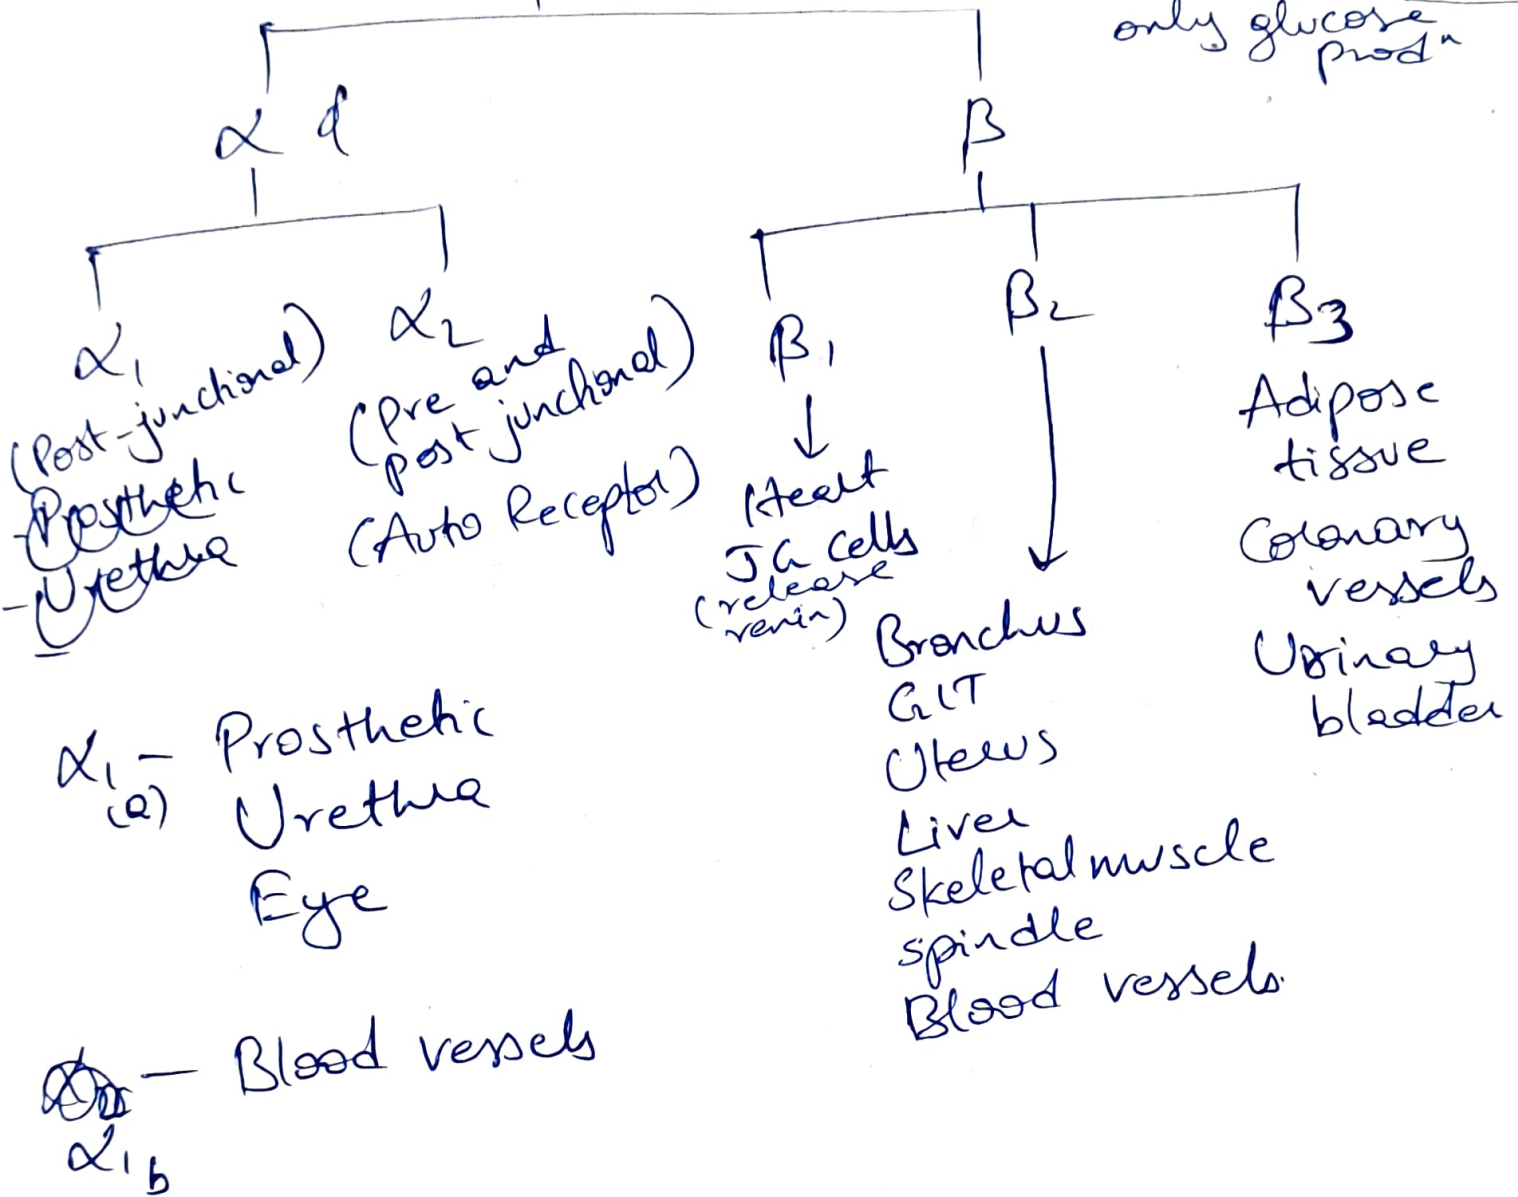 only glucose
prodⁿ
α
β
α1
(Post-junctional)
α2
(Pre and
post junctional)
(Auto Receptor)
β1
Heart
JG cells
(release
renin)
β2
Bronchus
GIT
Uterus
Liver
Skeletal muscle
spindle
Blood vessels.
β3
Adipose
tissue
Coronary
vessels
Urinary
bladder
- Prosthetic
- Urethra
α1 - Prosthetic
(a) Urethra
Eye
— Blood vessels
α1b